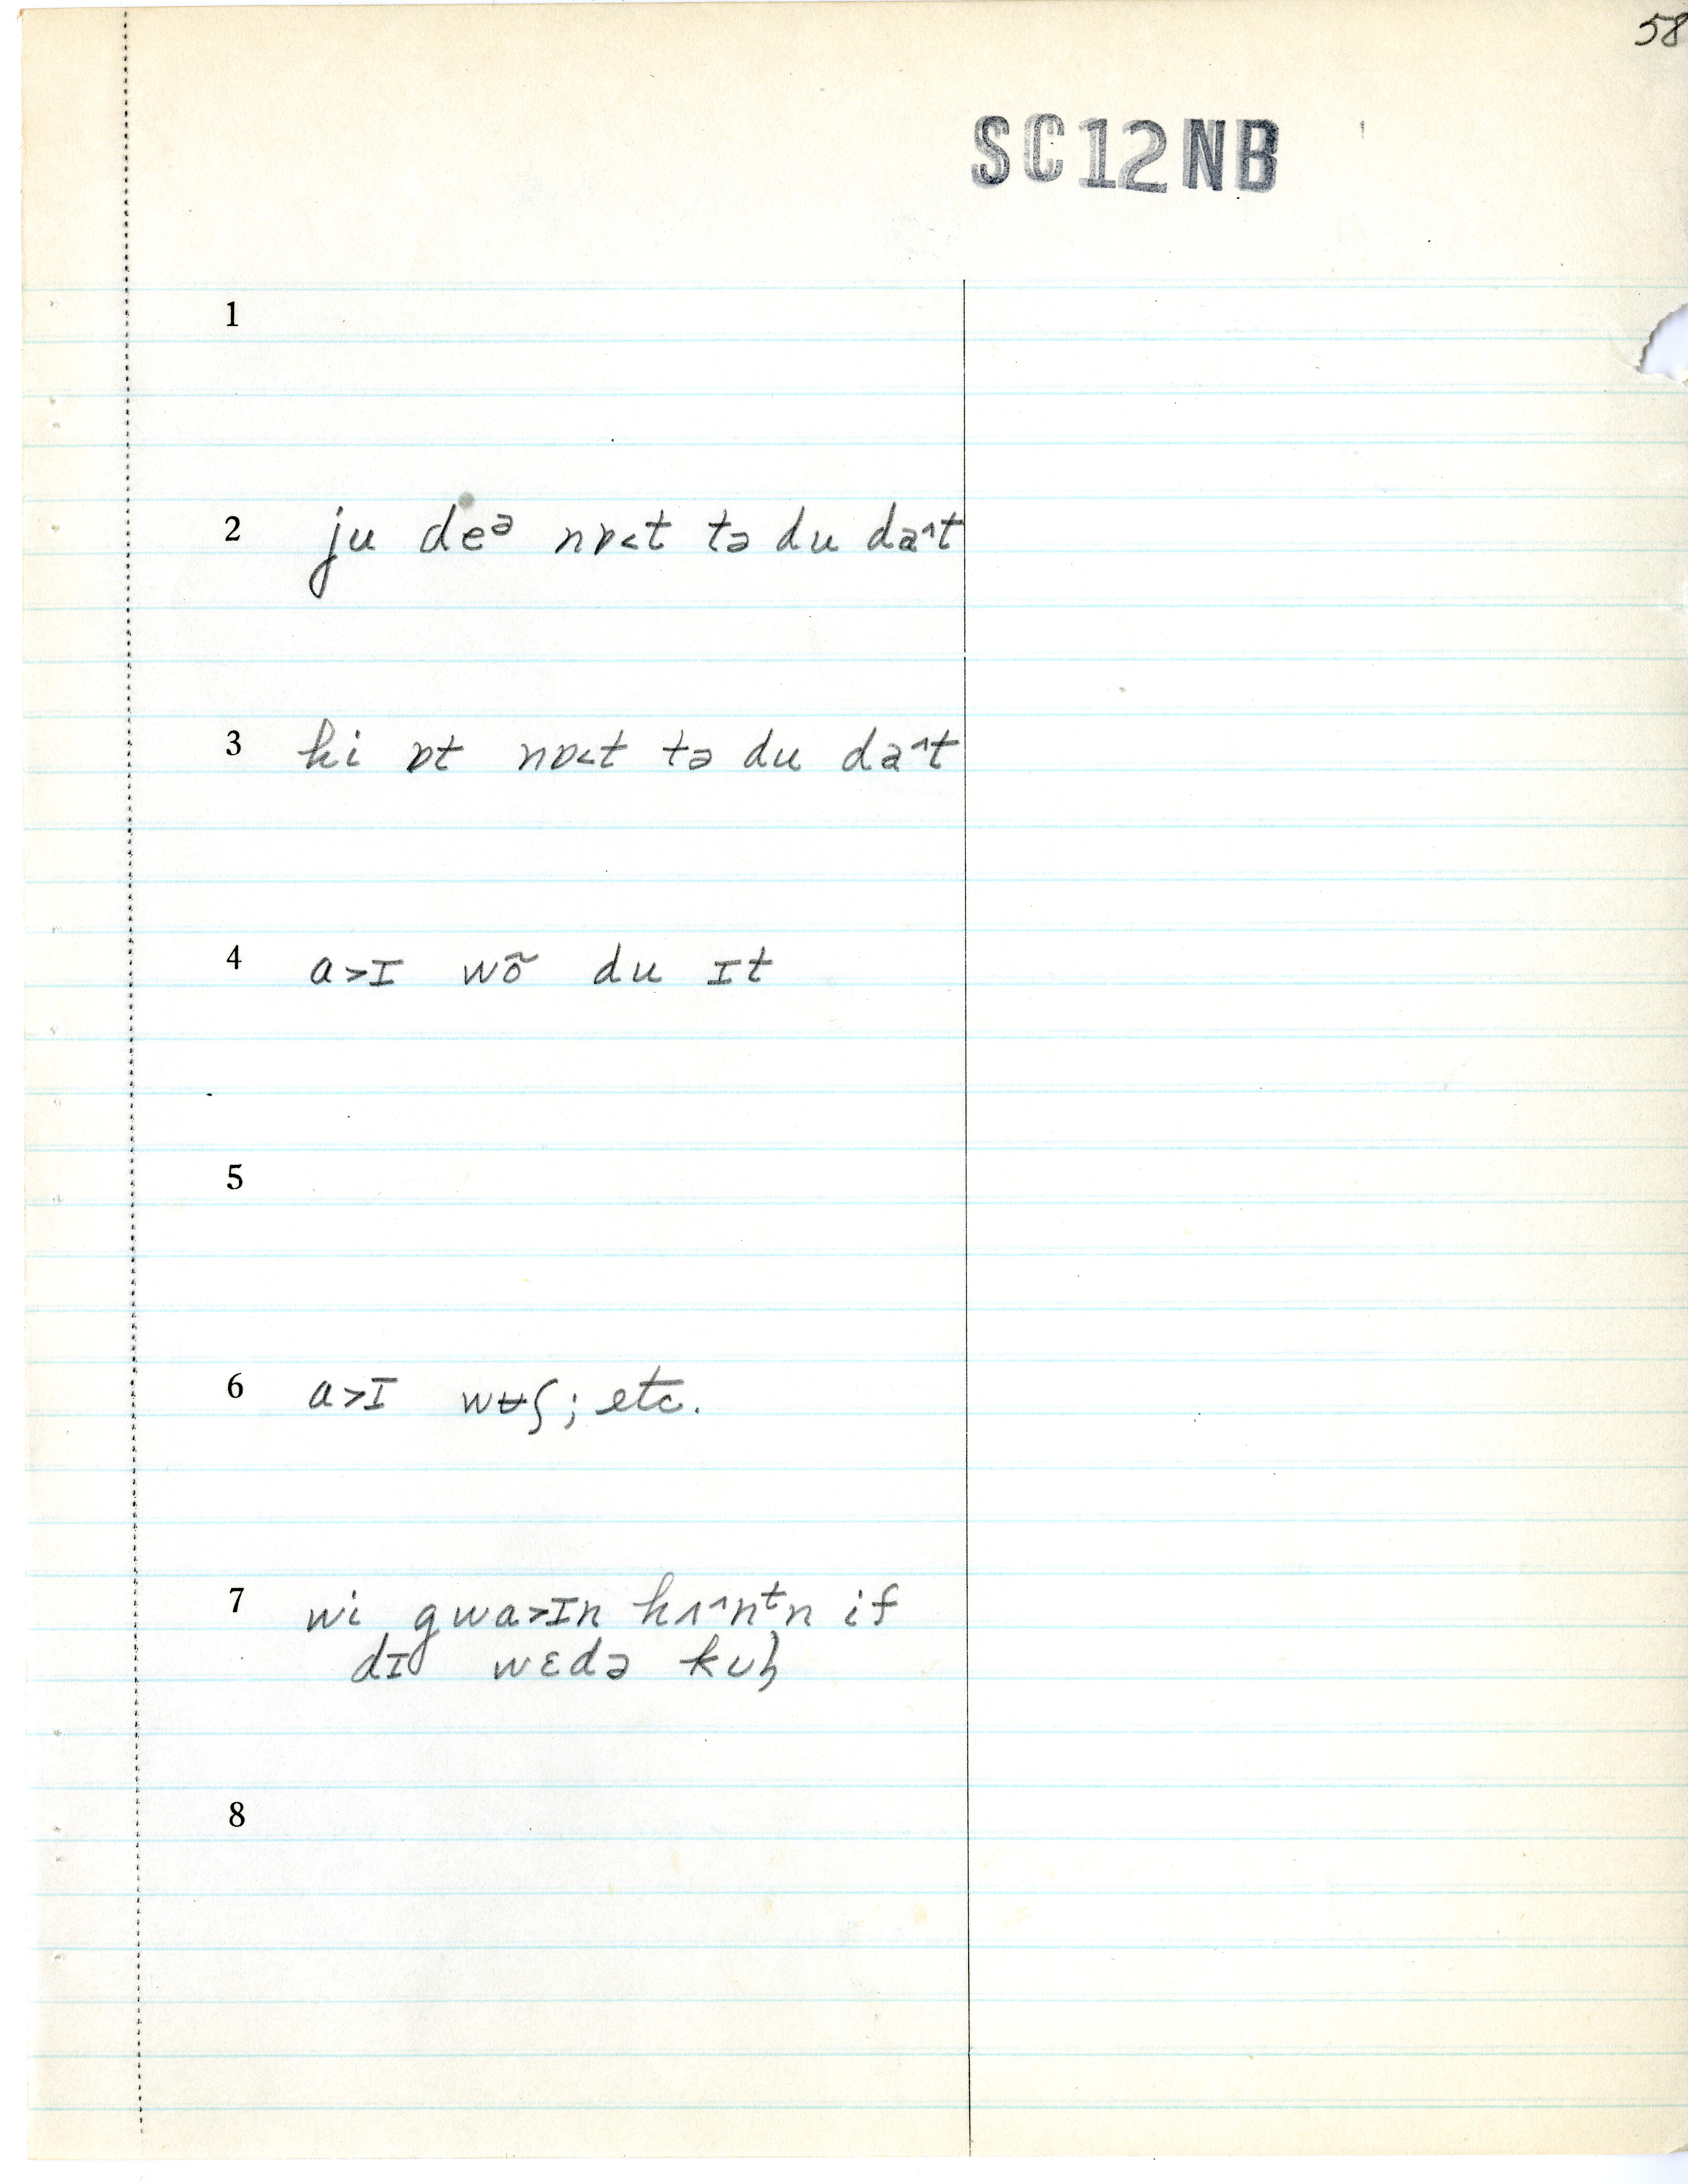 58
SC12NB
1
2 ju deᵊ nɒ<t tə du da^t
3 hi ɒt nɒ<t tə du da^t
4 a>ɪ wõ du ɪt
5
6 a>ɪ wʉʃ; etc.
7 wi gwa>ɪn hʌ^nᵗn if
dɪ wɛdə
8